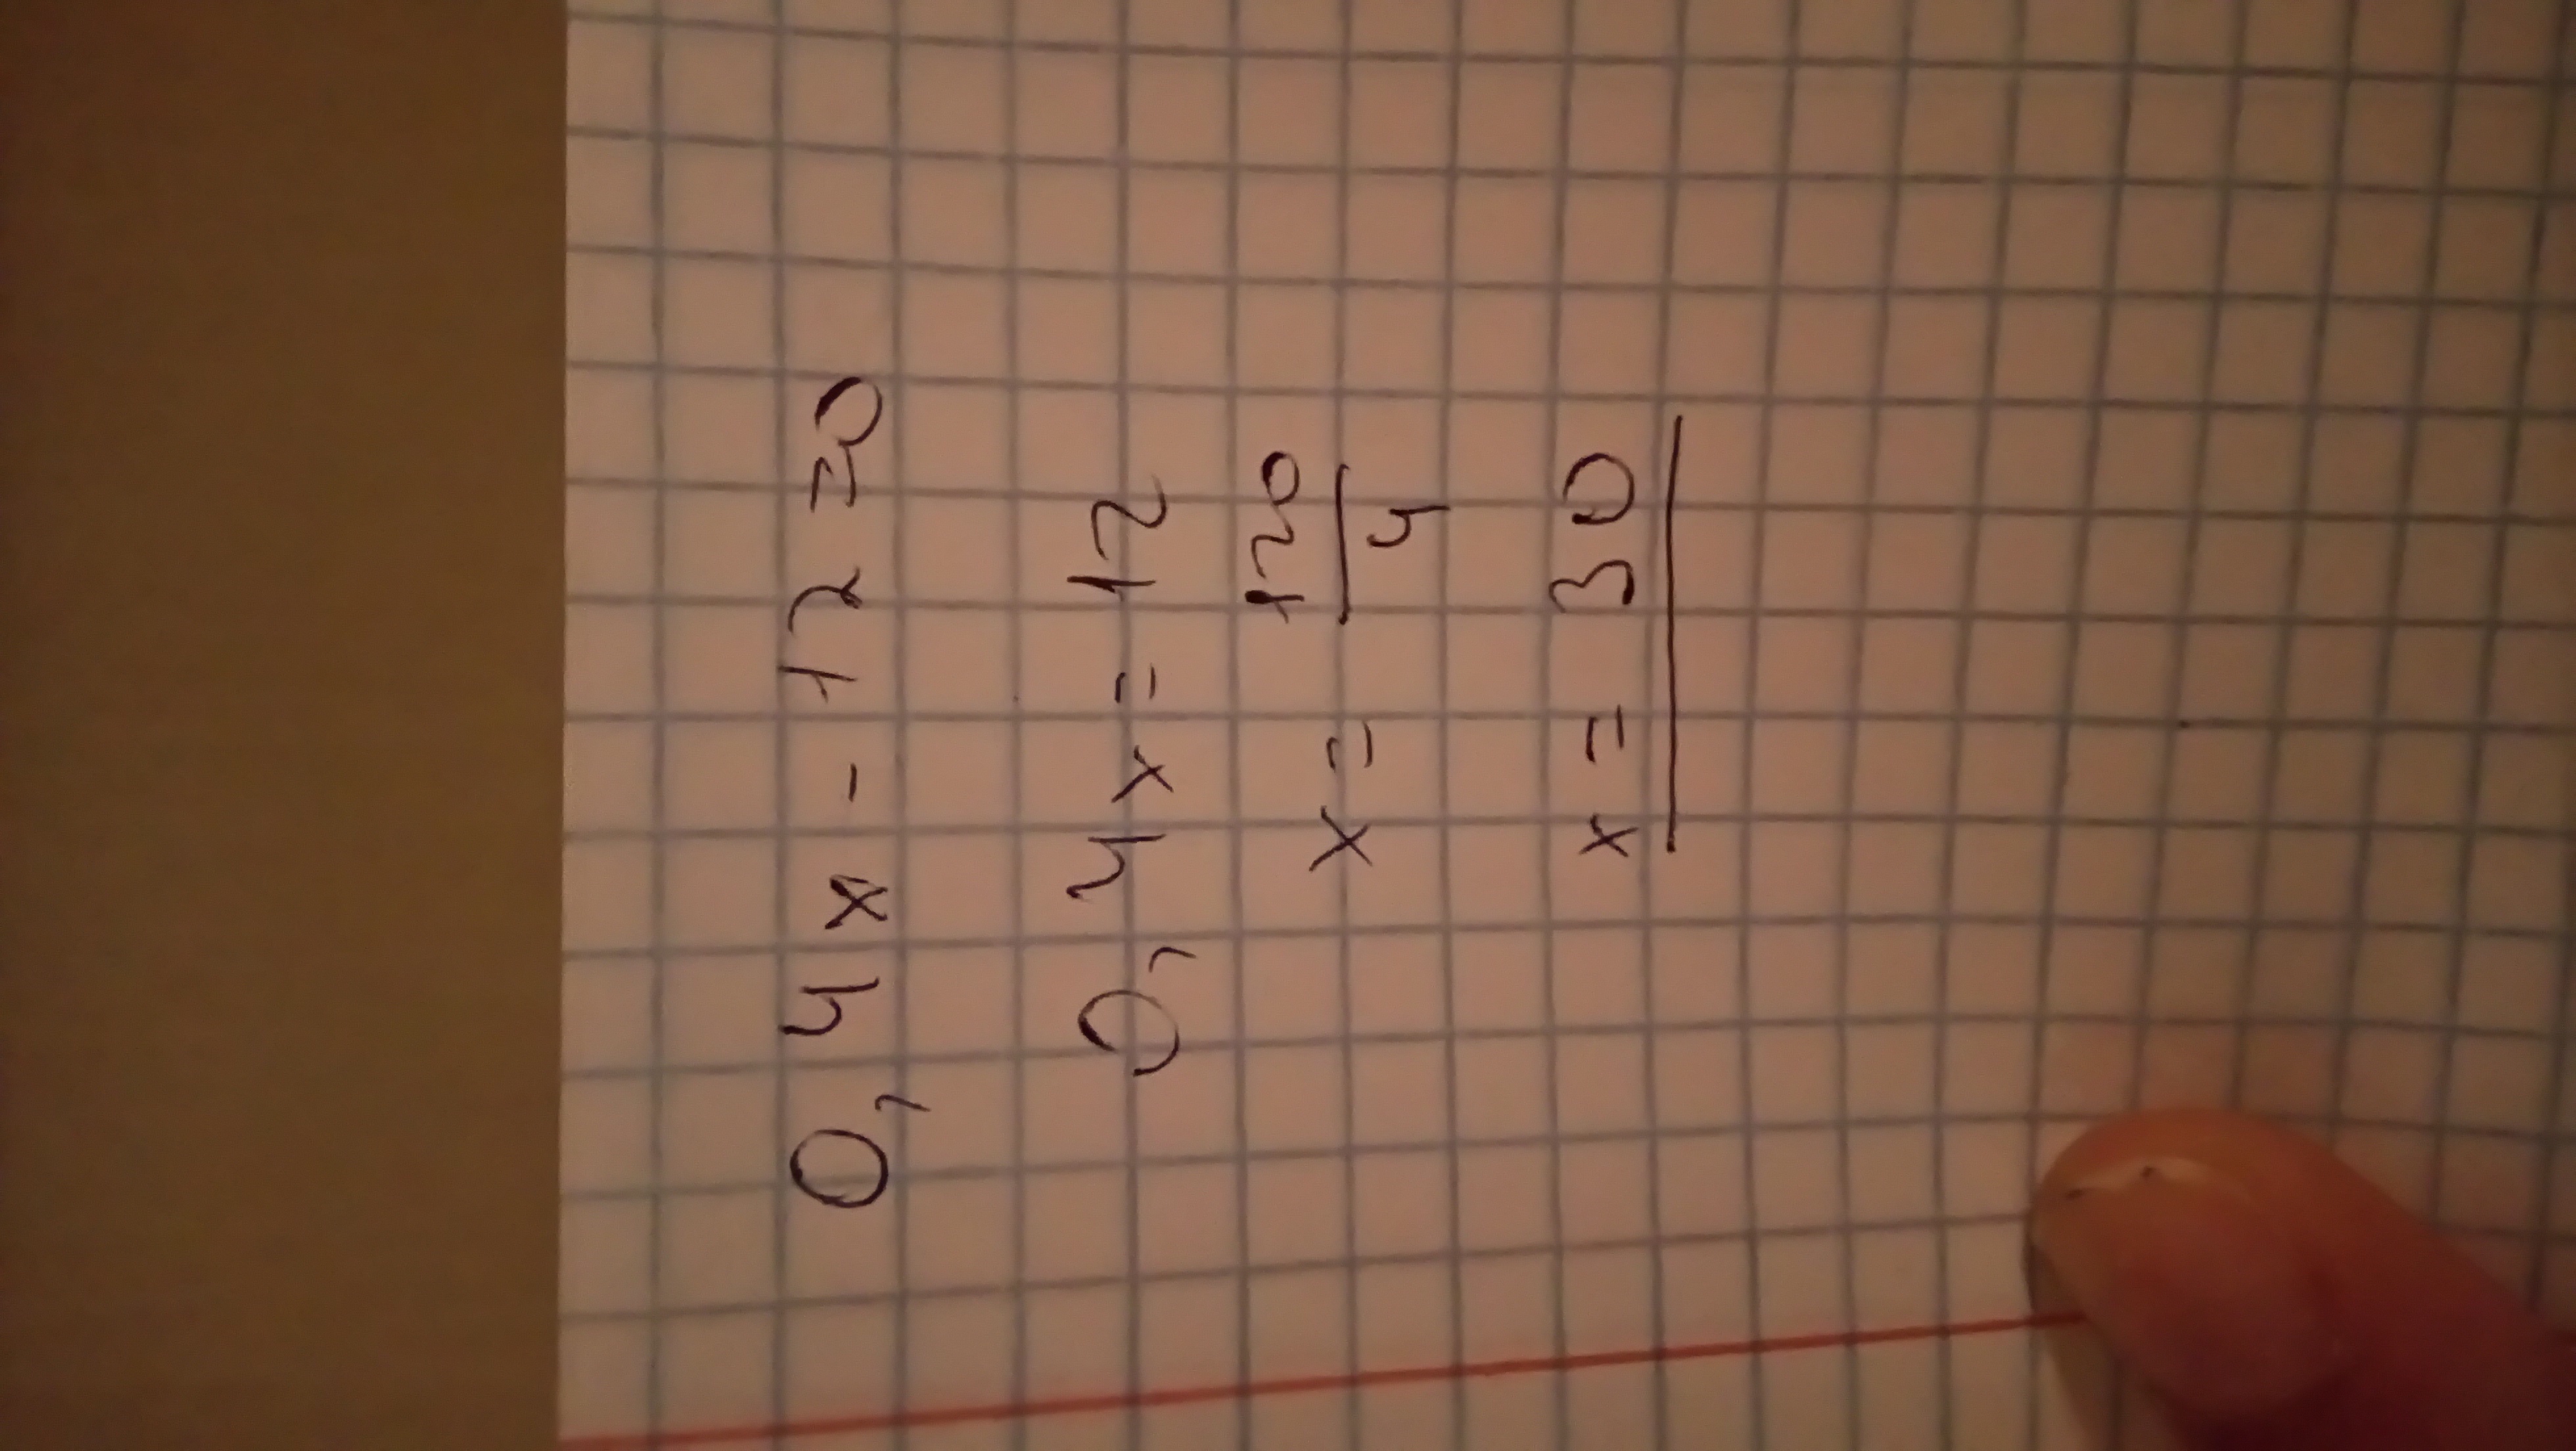 0,4x - 12 = 0
0,4x = 12
x = 120/4
x = 30